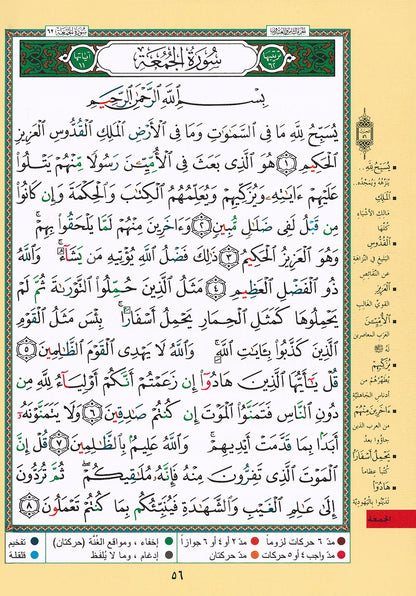 سُورَةُ الجُمُعَة ٦٢
ترتيبها ٦٢
سُورَةُ الجُمُعَةِ
آياتها ١١
بِسْمِ اللَّهِ الرَّحْمَٰنِ الرَّحِيمِ
يُسَبِّحُ لِلَّهِ مَا فِى السَّمَٰوَٰتِ وَمَا فِى الْأَرْضِ الْمَلِكِ الْقُدُّوسِ الْعَزِيزِ
الْحَكِيمِ ﴿١﴾ هُوَ الَّذِى بَعَثَ فِى الْأُمِّيِّـنَ رَسُولًا مِّنْهُمْ يَتْلُوا۟
عَلَيْهِمْ ءَايَٰتِهِۦ وَيُزَكِّيهِمْ وَيُعَلِّمُهُمُ الْكِتَٰبَ وَالْحِكْمَةَ وَإِن كَانُوا۟
مِن قَبْلُ لَفِى ضَلَٰلٍ مُّبِينٍ ﴿٢﴾ وَءَاخَرِينَ مِنْهُمْ لَمَّا يَلْحَقُوا۟ بِهِمْ ۚ
وَهُوَ الْعَزِيزُ الْحَكِيمُ ﴿٣﴾ ذَٰلِكَ فَضْلُ اللَّهِ يُؤْتِيهِ مَن يَشَآءُ ۚ وَاللَّهُ
ذُو الْفَضْلِ الْعَظِيمِ ﴿٤﴾ مَثَلُ الَّذِينَ حُمِّلُوا۟ التَّوْرَىٰةَ ثُمَّ لَمْ
يَحْمِلُوهَا كَمَثَلِ الْحِمَارِ يَحْمِلُ أَسْفَارًۢا ۚ بِئْسَ مَثَلُ الْقَوْمِ
الَّذِينَ كَذَّبُوا۟ بِـَٔايَٰتِ اللَّهِ ۚ وَاللَّهُ لَا يَهْدِى الْقَوْمَ الظَّٰلِمِينَ ﴿٥﴾
قُلْ يَٰٓأَيُّهَا الَّذِينَ هَادُوٓا۟ إِن زَعَمْتُمْ أَنَّكُمْ أَوْلِيَآءُ لِلَّهِ مِن
دُونِ النَّاسِ فَتَمَنَّوُا۟ الْمَوْتَ إِن كُنتُمْ صَٰدِقِينَ ﴿٦﴾ وَلَا يَتَمَنَّوْنَهُۥٓ
أَبَدًۢا بِمَا قَدَّمَتْ أَيْدِيهِمْ ۚ وَاللَّهُ عَلِيمٌۢ بِالظَّٰلِمِينَ ﴿٧﴾ قُلْ إِنَّ
الْمَوْتَ الَّذِى تَفِرُّونَ مِنْهُ فَإِنَّهُۥ مُلَٰقِيكُمْ ۖ ثُمَّ تُرَدُّونَ
إِلَىٰ عَٰلِمِ الْغَيْبِ وَالشَّهَٰدَةِ فَيُنَبِّئُكُم بِمَا كُنتُمْ تَعْمَلُونَ ﴿٨﴾
يُسَبِّحُ لِلَّهِ..
يُنَزِّهُهُ وَيُمَجِّدُهُ..
الْمَلِكِ
مَالِكِ الأَشْيَاءِ
كُلِّهَا
الْقُدُّوسِ
البَلِيغِ فِي النَّزَاهَةِ
عَنِ النَّقَائِصِ
الْعَزِيزِ
القَوِيِّ الغَالِبِ
الْأُمِّيِّـنَ
العَرَبِ المُعَاصِرِينَ
لَهُ ﷺ
يُزَكِّيهِمْ
يُطَهِّرُهُمْ مِنْ
أَدْنَاسِ الجَاهِلِيَّةِ
وَءَاخَرِينَ مِنْهُمْ
مِنَ العَرَبِ الَّذِينَ
جَاؤُوا بَعْدُ
يَحْمِلُ أَسْفَارًا
كُتُبًا عِظَامًا
هَادُوٓا۟
تَدَيَّنُوا بِالْيَهُودِيَّةِ
الجمعة
مدّ ٦ حركات لزوماً
مدّ ٢ أو ٤ أو ٦ جوازاً
إخفاء، ومواقع الغُنَّة (حركتان)
تفخيم
مدّ واجب ٤ أو ٥ حركات
مدّ حركتان
إدغام، وما لا يُلفَظ
قلقلة
٥٦